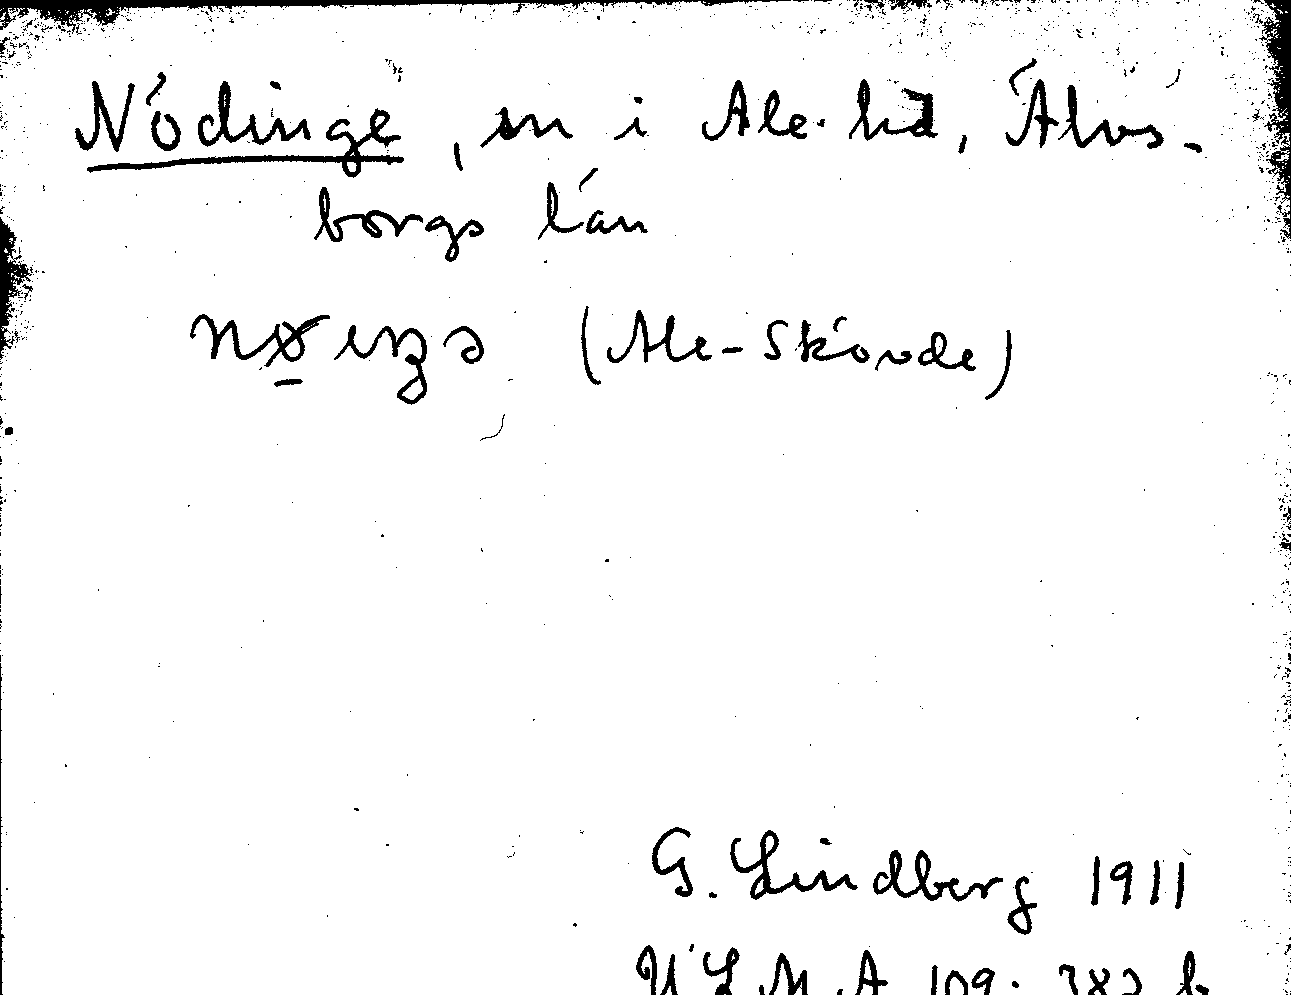 Nödinge, sn i Ale hd, Älvs-
borgs län
(Ale-Skövde)
G. Lindberg 1911
U.L.M.A. 109: